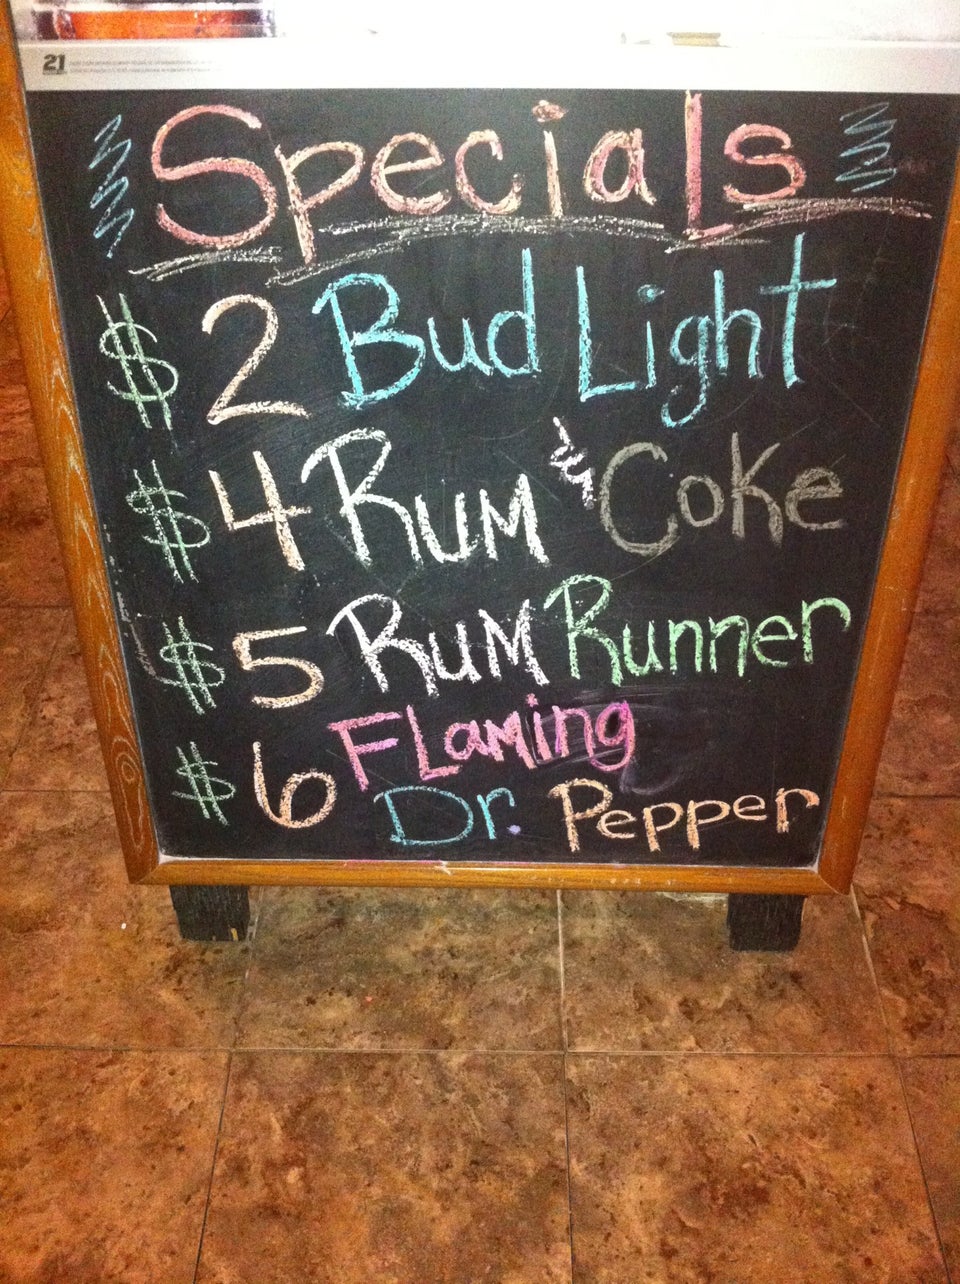 21
Specials
$2 Bud Light
$4 Rum & Coke
$5 Rum Runner
$6 Flaming
Dr. Pepper